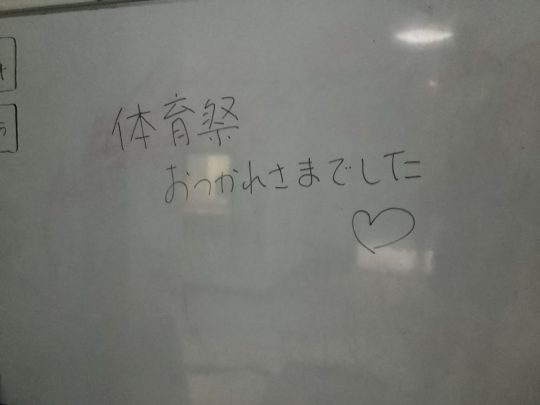 体育祭
おつかれさまでした